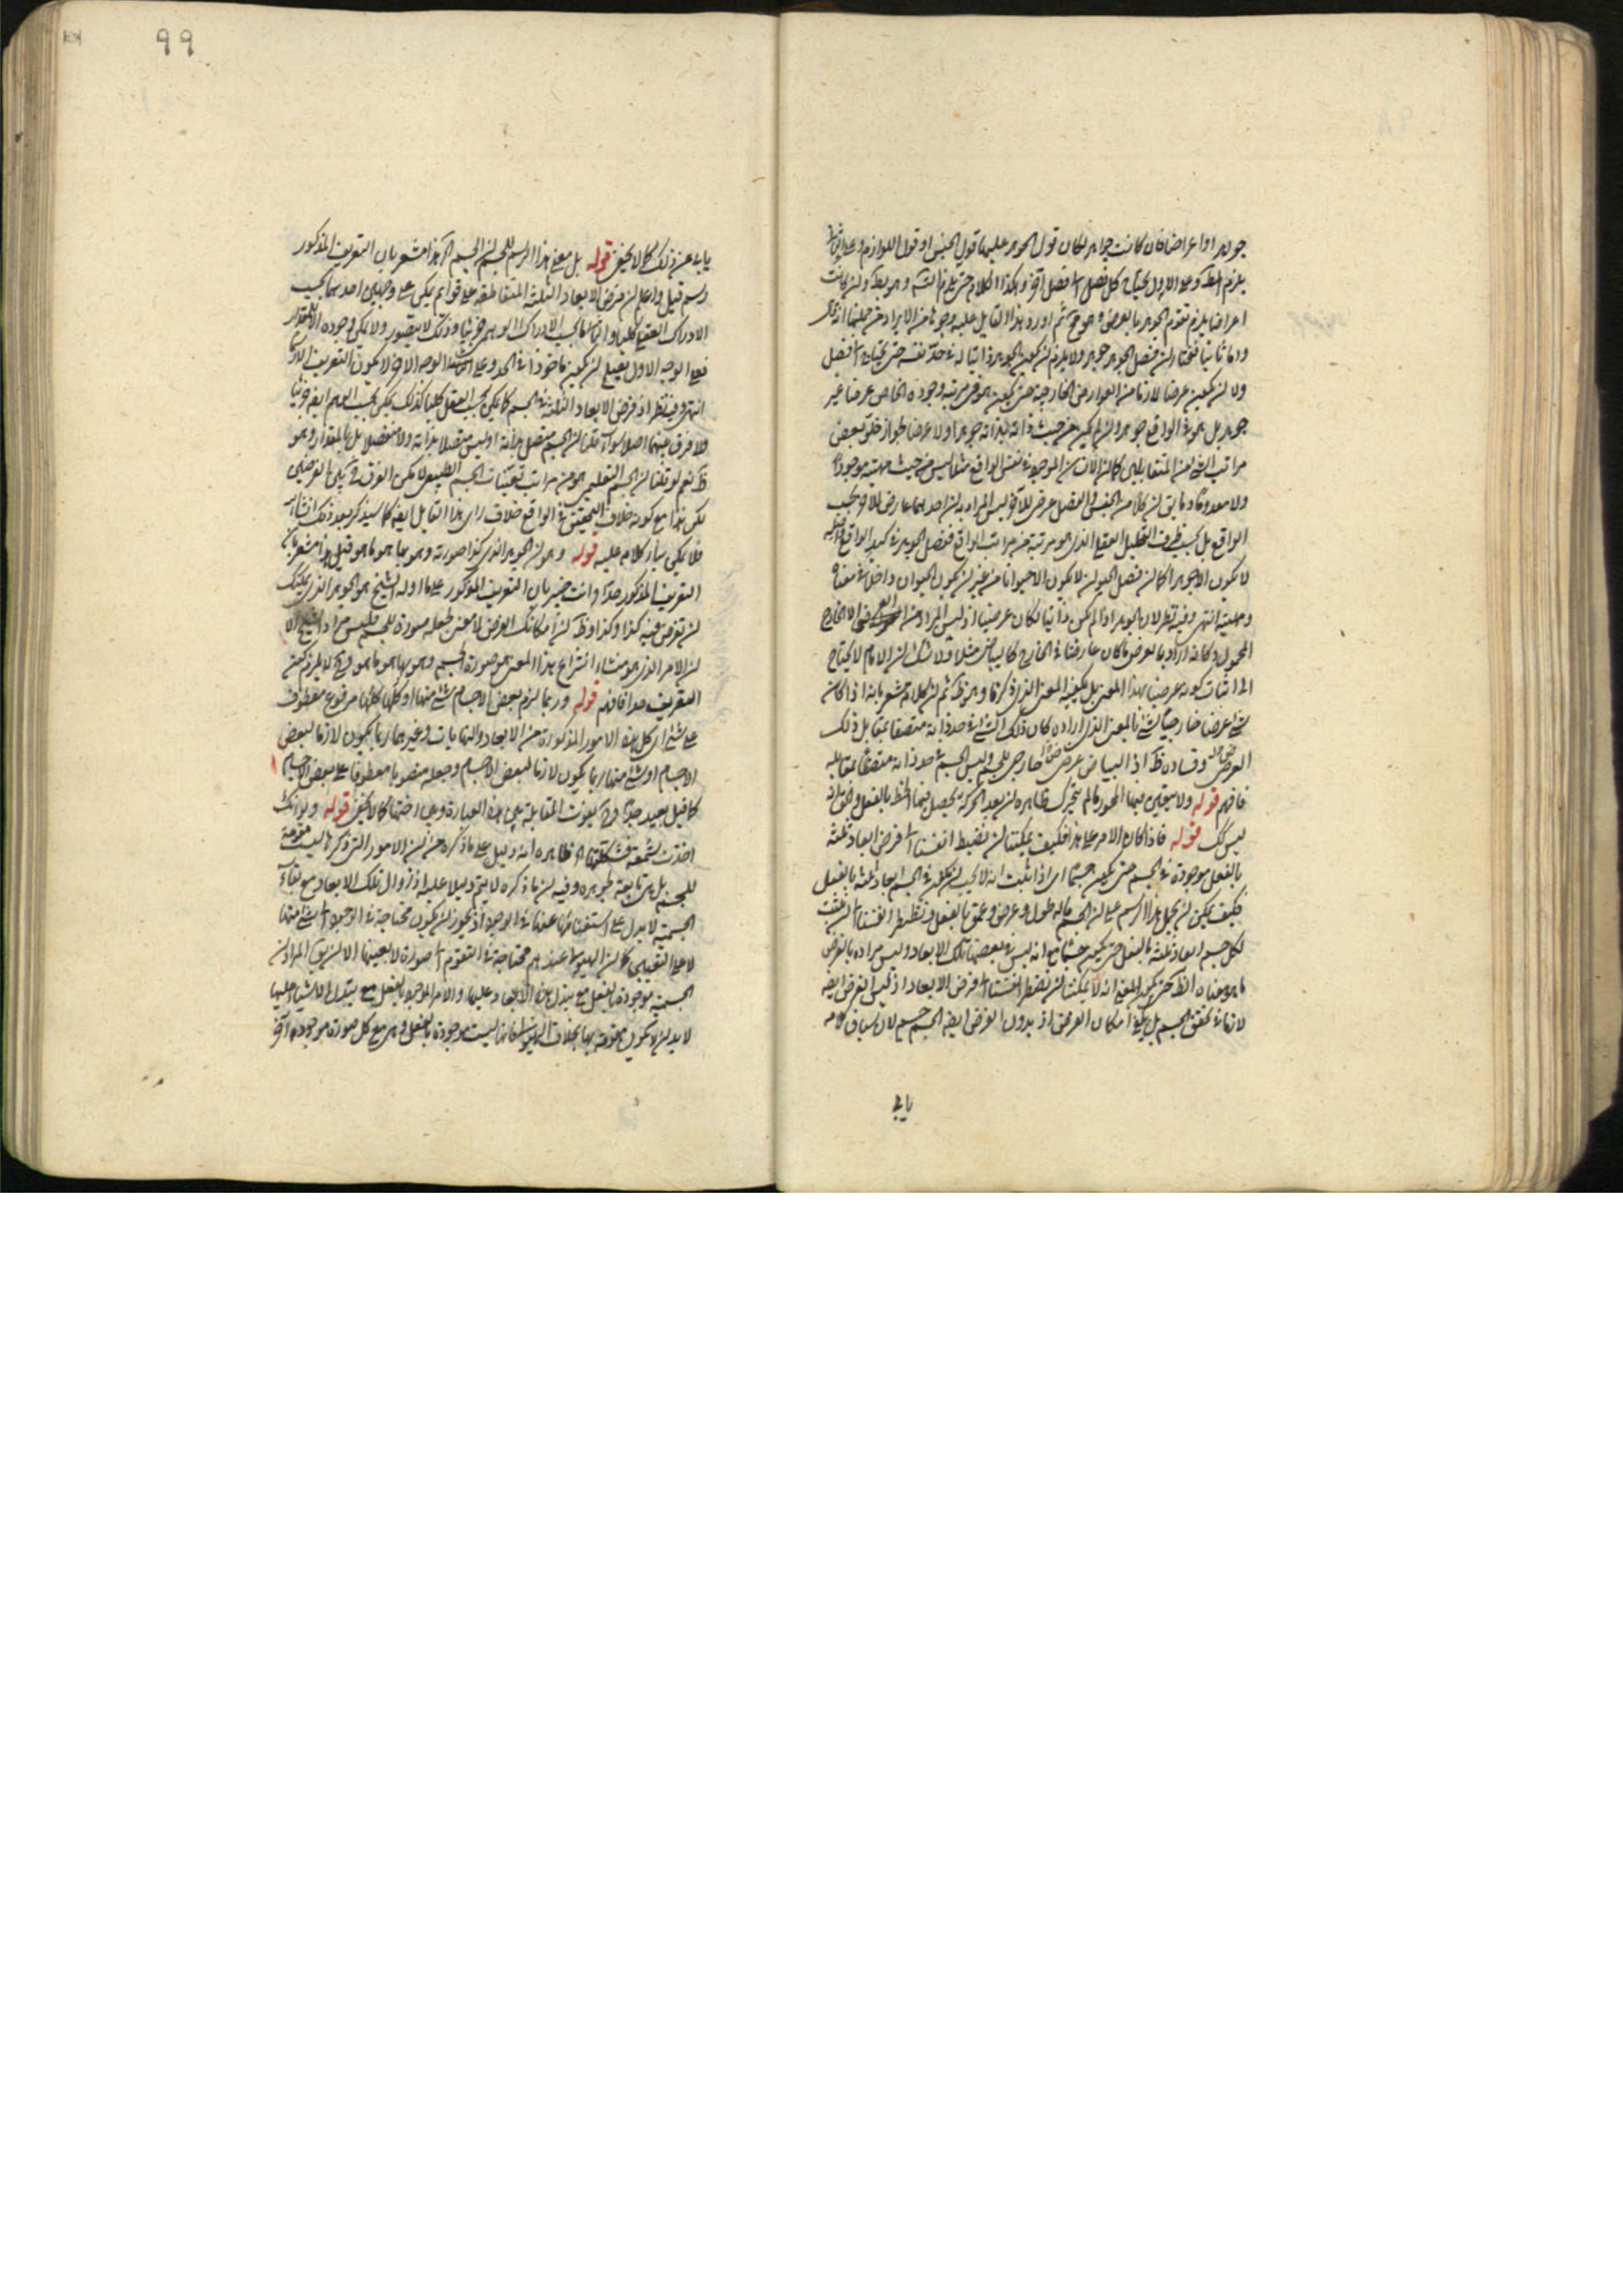 جواهر او اعراض فان كانت جواهر لكان قول الجوهر عليها قول الجنس او قول اللوازم وعلى
يلزم المط وعلى الاول يحتاج كل فصل الى فصل آخر وهكذا الكلام حتى يلزم التس وهو بط وان كانت
اعراضا يلزم تقوم الجوهر بالعرض وهو مح ثم اورد هذا القايل عليه وجوها من الايراد من جملتها
واما ثانيا فنختار ان فصل الجوهر جوهر ولا يلزم ان يكون الجوهر ذاتيا له في حد نفسه حتى يحتاج الى فصل
ولا ان يكون عرضا لازما من العوارض الخارجية حتى يكون هو في مرتبة وجوده الخاص عرضا غير
جوهر بل هو في الواقع جوهر وان لم يكن من حيث ذاته بذاته جوهرا ولا عرضا لجواز خلو بعض
مراتب الشئ عن المتقابلين كما ان الانسان الموجود في نفس الواقع مثلا ليس من حيث مهيته موجودا
ولا معدوما وما يق ان كلا من الجنس والفصل عرض للآخر ليس المراد به ان احدهما عارض للآخر بحسب
الواقع بل بحسب ظرف التحليل العقلي الذي هو مرتبة من مراتب الواقع ففصل الجوهر في كبد الواقع
لا يكون الا جوهرا كما ان فصل الحيوان لا يكون الا حيوانا من غير ان يكون الحيوان داخلا في معناه
ومهيته انتهى وفيه نظر لان الجوهر اذا لم يكن ذاتيا لكان عرضيا اذ ليس المراد من العرضي الا الخارج
المحمول وكانه اراد بالعرض ما كان عارضا في الخارج كالبياض مثلا ولا شك ان الامام لا يحتاج
الى اثبات كونه عرضيا بهذا المعنى بل يكفيه المعنى الذي ذكرنا وهو ظ ثم ان كلامه مشعر بانه اذا كان
شئ عرضا خارجيا لشئ بالمعنى الذي اراده كان ذلك الشئ في حد ذاته متصفا بمقابل ذلك
العرض وفساده ظ اذ البياض عرض خارجي للجسم وليس الجسم في حد ذاته متصفا بمقابله
فافهم قوله ولا يتعين فيها المحور ما لم يتحرك ظاهره ان بعد الحركة يحصل فيها الخط بالفعل والحق انه
ليس كك قوله فاذا كان الامر على هذا فكيف يمكننا ان نضبط انفسنا الى فرض ابعاد ثلثة
بالفعل موجودة في الجسم حتى يكون جسما اي اذا ثبت انه لا يجب ان يكون في الجسم ابعاد ثلثة بالفعل
فكيف يمكن ان يحمل هذا الرسم على ان الجسم ماله طول وعرض وعمق بالفعل ونضطر انفسنا الى ان نثبت
لكل جسم ابعاد ثلثة بالفعل حتى يكون جسما مع انه ليس في بعضها تلك الابعاد وليس مراده بالفرض
ما هو معناه الظ حتى يكون المعنى انه لا يمكننا ان نضطر انفسنا الى فرض الابعاد اذ ليس الفرض ايضه
لازما في تحقق الجسم بل يكفي امكان الفرض اذ بدون الفرض ايضه الجسم جسم لان سياق كلامه
يابى
٩٩
يابى عن ذلك كما لا يخفى قوله بل معنى هذا الرسم للجسم ان الجسم آه هذا مشعر بان التعريف المذكور
رسم قيل واعلم ان فرض الابعاد الثلثة المتقاطعة على قوايم يكن على وجهين احدهما بحسب
الادراك العقلي كليا وثانيهما بحسب الادراك الوهمي جزئيا وذلك لا يتصور ولا يكن وجوده الا بالمقدار
فعلى الوجه الاول يصح ان يكون ماخوذا في الحد وعلى الوجه الآخر لا يكون التعريف الا رسما
انتهى وفيه نظر اذ فرض الابعاد الثلثة في الجسم كما يكن بحسب العقل كليا كذلك يكن بحسب الوهم ايضه جزئيا
ولا فرق بينهما اصلا سواء قلنا ان الجسم متصل بذاته او ليس متصلا بذاته ولا منفصلا بل بالمقدار وهو
ظ نعم لو قلنا ان الجسم التعليمي هو من مراتب تعينات الجسم الطبيعي لا يكن الفرق بين الفرضين
لكن هذا مع كونه خلاف التحقيق في الواقع خلاف راي هذا القايل ايضه كما سيذكر بعد ذلك انشاء الله
فلا يكن بناء كلامه عليه قوله وهو ان الجوهر الذي كذا صورته وهو بها هو ما هو قيل هذا مشعر بان
التعريف المذكور حد وانت خبير بان التعريف المذكور على ما اوله الشيخ هو الجوهر الذي يمكنك
ان تفرض فيه كذا وكذا وظ ان امكانك الفرض لا معنى لجعله صورة للجسم فليس مراد الشيخ الا
ان الامر الذي هو منشاء انتزاع هذا المعنى هو صورة الجسم وهو بها هو ما هو وح لا يلزم كون
التعريف حدا فافهم قوله وربما لزم بعض الاجسام شئ منها او كلها كلها مرفوع معطوف
على شئ اي كل هذه الامور المذكورة من الابعاد والنهايات وغيرها ربما يكون لازما لبعض
الاجسام او شئ منها ربما يكون لازما لبعض الاجسام وجعله منصوبا معطوفا على بعض الاجسام
كما قيل بعيد جدا وح يفوت المقابلة بين هذه العبارة وبين اختها كما لا يخفى قوله ولو انك
اخذت شمعة فشكلتها آه ظاهره انه دليل على ما ذكره من ان الامور التي ذكرها ليست مقومة
للجسم بل هي تابعة لجوهره وفيه ان ما ذكره لا يتم دليلا عليه اذ زوال تلك الابعاد مع بقاء
الجسمية لا يدل على استغنائها عنها في الوجود اذ يجوز ان يكون محتاجة في الوجود الى شئ منها
لا على التعيين كما ان الهيولى عندهم محتاجة في التقوم الى صورة لا بعينها الا ان يق المراد ان
الجسمية موجودة بالفعل مع تبدل هذه الابعاد عليها والامر الموجود بالفعل مع تبدل الاشياء عليها
لا بد ان لا يكون متقومة بها بخلاف الهيولى فانها ليست موجودة بالفعل وهي مع كل صورة موجودة آخر